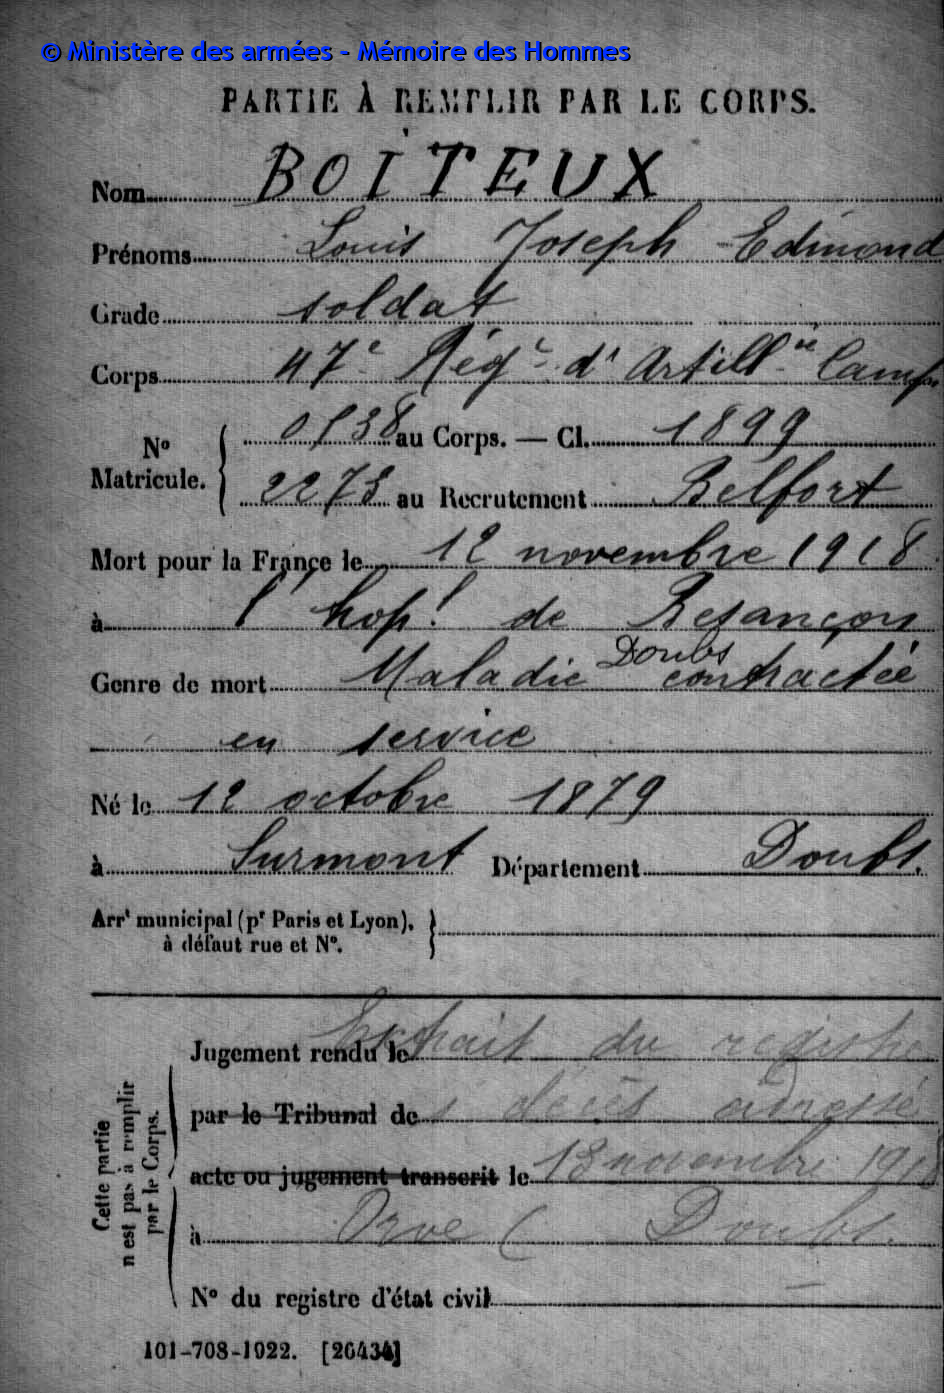 © Ministère des armées - Mémoire des Hommes
PARTIE À REMPLIR PAR LE CORPS.
Nom BOITEUX
Prénoms Louis Joseph Edmond
Grade soldat
Corps 47e Régt d'Artillie Camp
No Matricule. 0138 au Corps. — Cl. 1899
2273 au Recrutement Belfort
Mort pour la France le 12 novembre 1918
à l'hop! de Besançon
Doubs
Genre de mort Maladie contractée
en service
Né le 12 octobre 1879
à Surmont Département Doubs.
Arrt municipal (pr Paris et Lyon),
à défaut rue et No.
Cette partie n'est pas à remplir par le Corps.
Jugement rendu le Extrait du registre
par le Tribunal de s décès adressé
acte ou jugement transcrit le 13 novembre 1918
à Orve ( Doubs.
No du registre d'état civil —
101-708-1922. [26434]